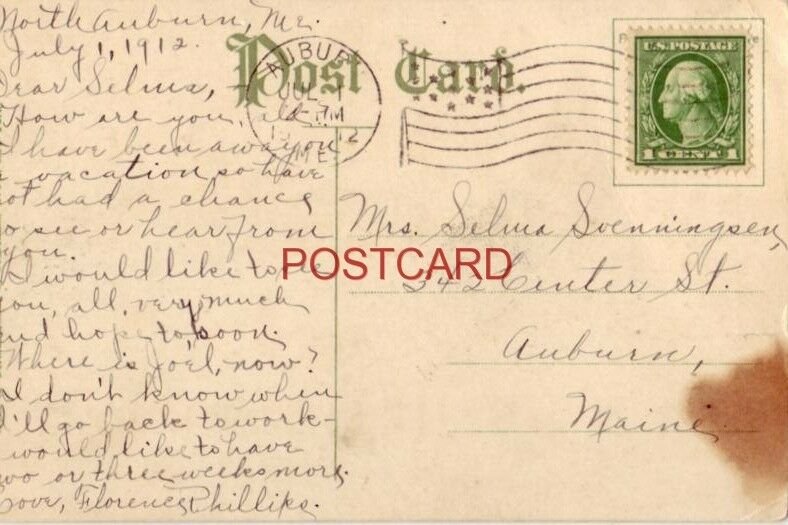 North Auburn, Me.
July 1, 1912.
Dear Selma, -
How are you, all
I have been away on
a vacation so have
not had a chance
to see or hear from
you.
I would like to see
you, all, very much
and hope to, soon.
Where is Joel, now?
I don't know when
I'll go back to work-
I would like to have
two or three weeks more.
Love, Florence Phillips.
Post Card.
AUBUR
JUL 1
7 PM
1912
ME.
U.S. POSTAGE
1 CENT 1
Mrs. Selma Svenningsen,
242 Center St.
Auburn,
Maine.
POSTCARD